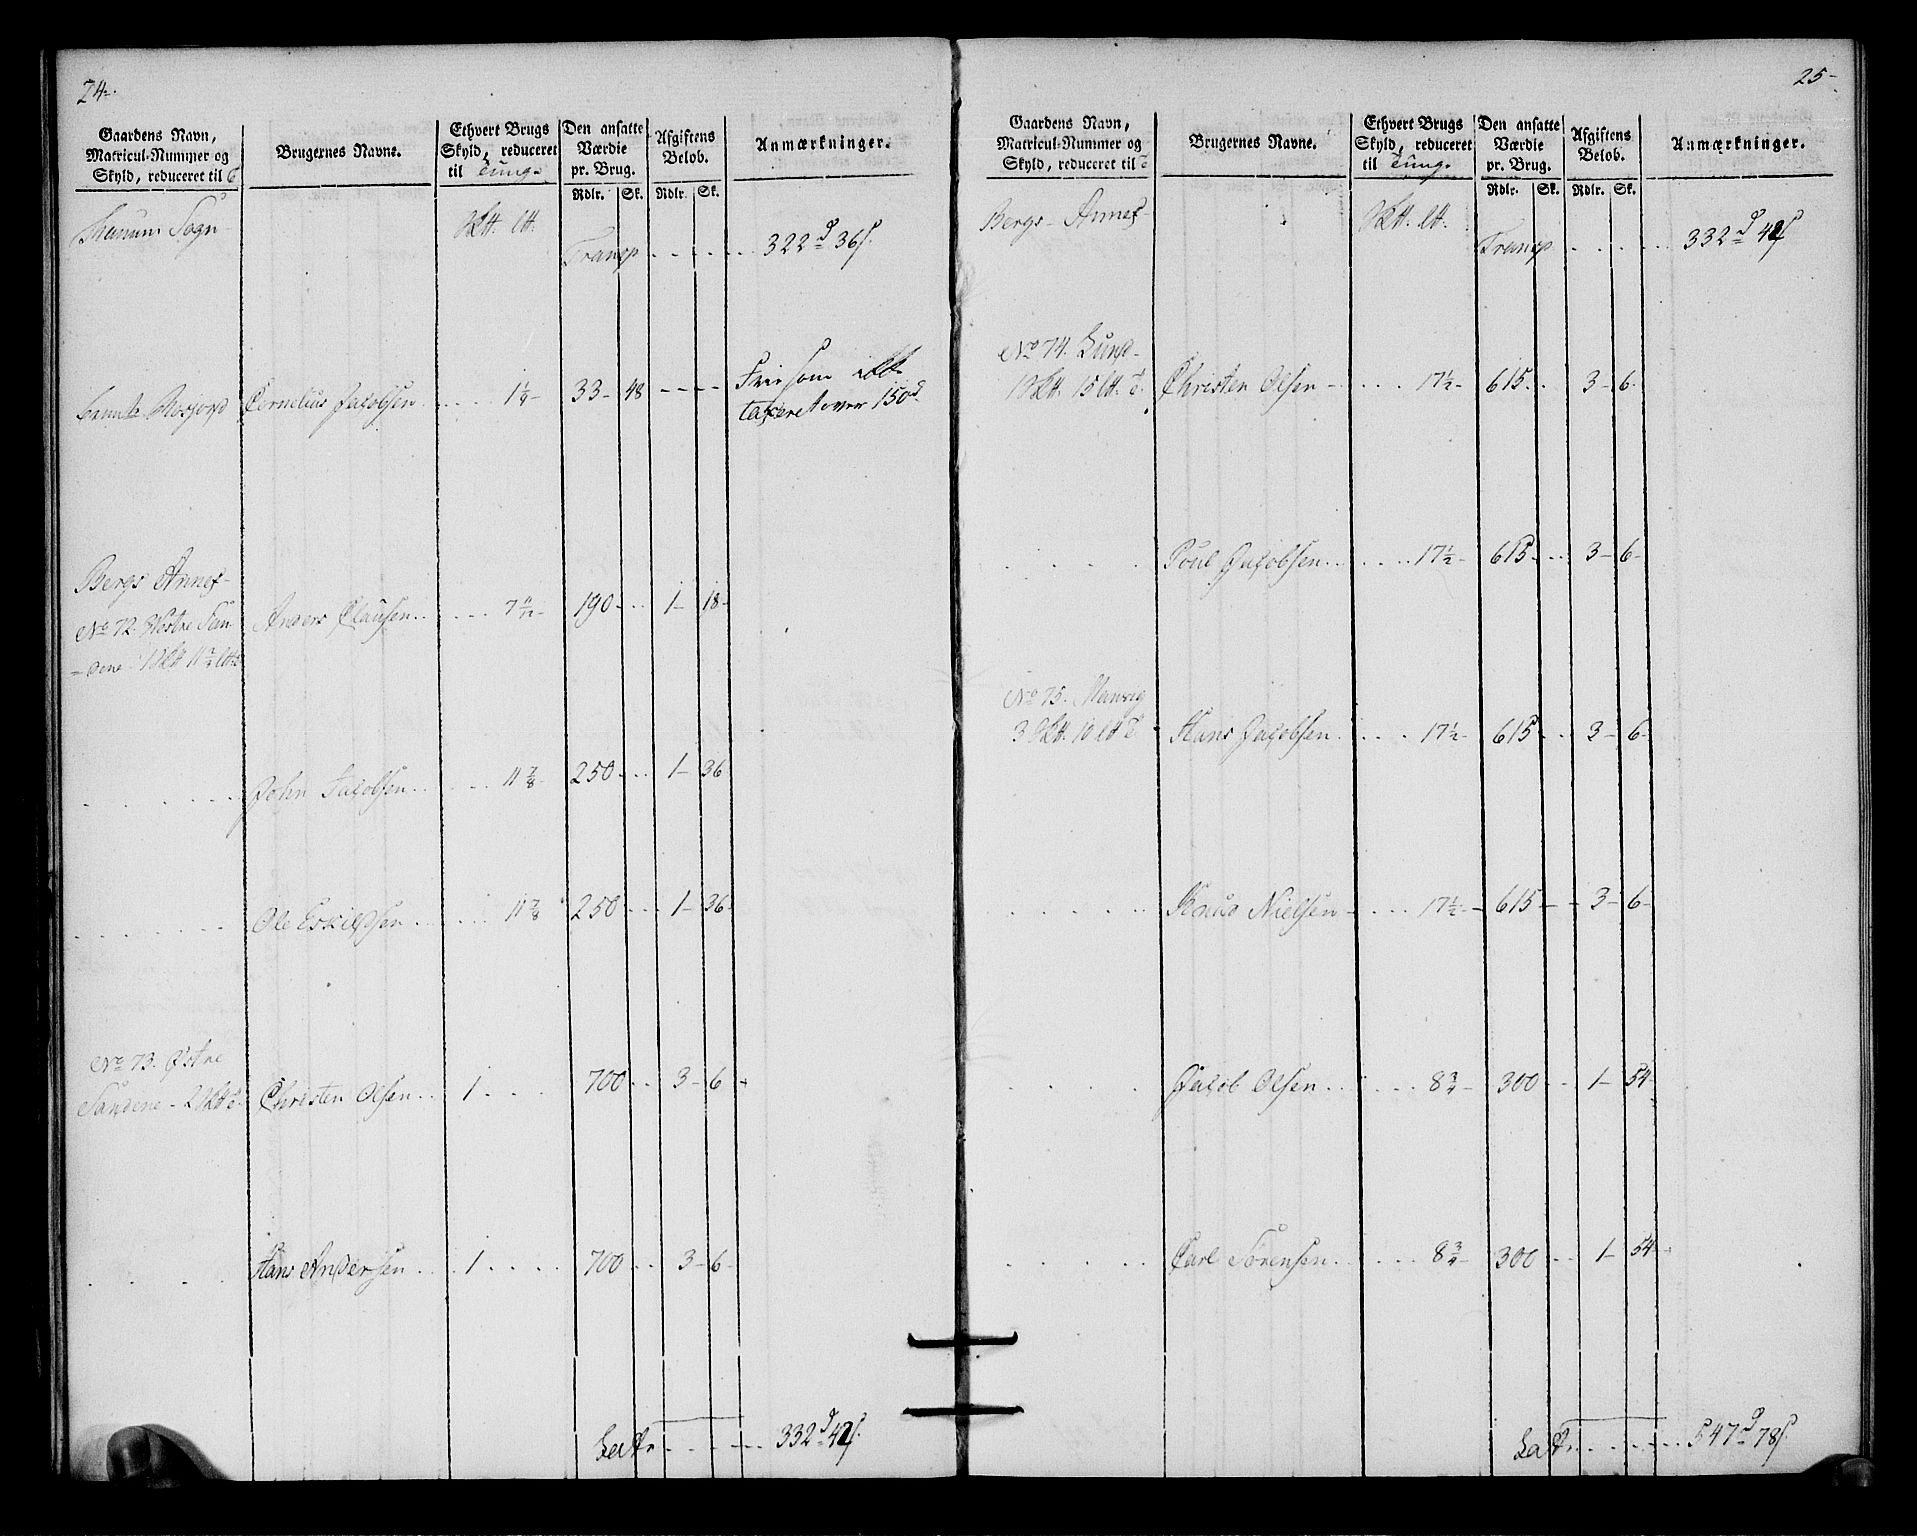 24.
Gaardens Navn,
Matricul-Nummer og
Skyld, reduceret til
Brugernes Navne.
Ethvert Brugs
Skyld, reduceret
til Tunge
Den ansatte
Værdie
pr. Brug.
Rdlr. Sk.
Afgiftens
Belob.
Rdlr. Sk.
Anmærkninger.
Sogn
Transp ..... 322 d 36 s.
Cornelius Jacobsen .... 1 1/4 - 33 - 48 ---- Frie som ikke
taxeret over 150 d.
Bergs Annex
No 72. Westre San-
-dene 1 11 3/4 Anders Clausen ... 7 11/12 - 190 ... 1 - 18 -
John Jacobsen ... 11 7/8 250 ... 1 - 36
Ole Eskildsen ... 11 7/8 250 ... 1 - 36
No 73. Østre
Sandene - 2 Christen Olsen .. 1 .... 700 .. 3 - 6
Hans Andersen .. 1 .... 700 .. 3 - 6 -
Latr ..... 332 d 42 s.
25-
Gaardens Navn,
Matricul-Nummer og
Skyld, reduceret til
Brugernes Navne.
Ethvert Brugs
Skyld, reduceret
til Tunge
Den ansatte
Værdie
pr. Brug.
Rdlr. Sk.
Afgiftens
Belob.
Rdlr. Sk.
Anmærkninger.
Bergs Annex
Transp ..... 332 d 42 s
No 74. Lund
1 15 Christen Olsen .... 17 1/2 - 615 .. 3 - 6 -
Poul Jacobsen .... 17 1/2 - 615 .. 3 - 6 -
No 75.
3 10 Hans Jacobsen .... 17 1/2 - 615 .. 3 - 6 -
Knud Nielsen .... 17 1/2 - 615 - 3 - 6 -
Jacob Olsen .... 8 3/4 - 300 .. 1 - 54 -
Carl Sörensen .... 8 3/4 - 300 .. 1 - 54
Latr ..... 547 d 78 s